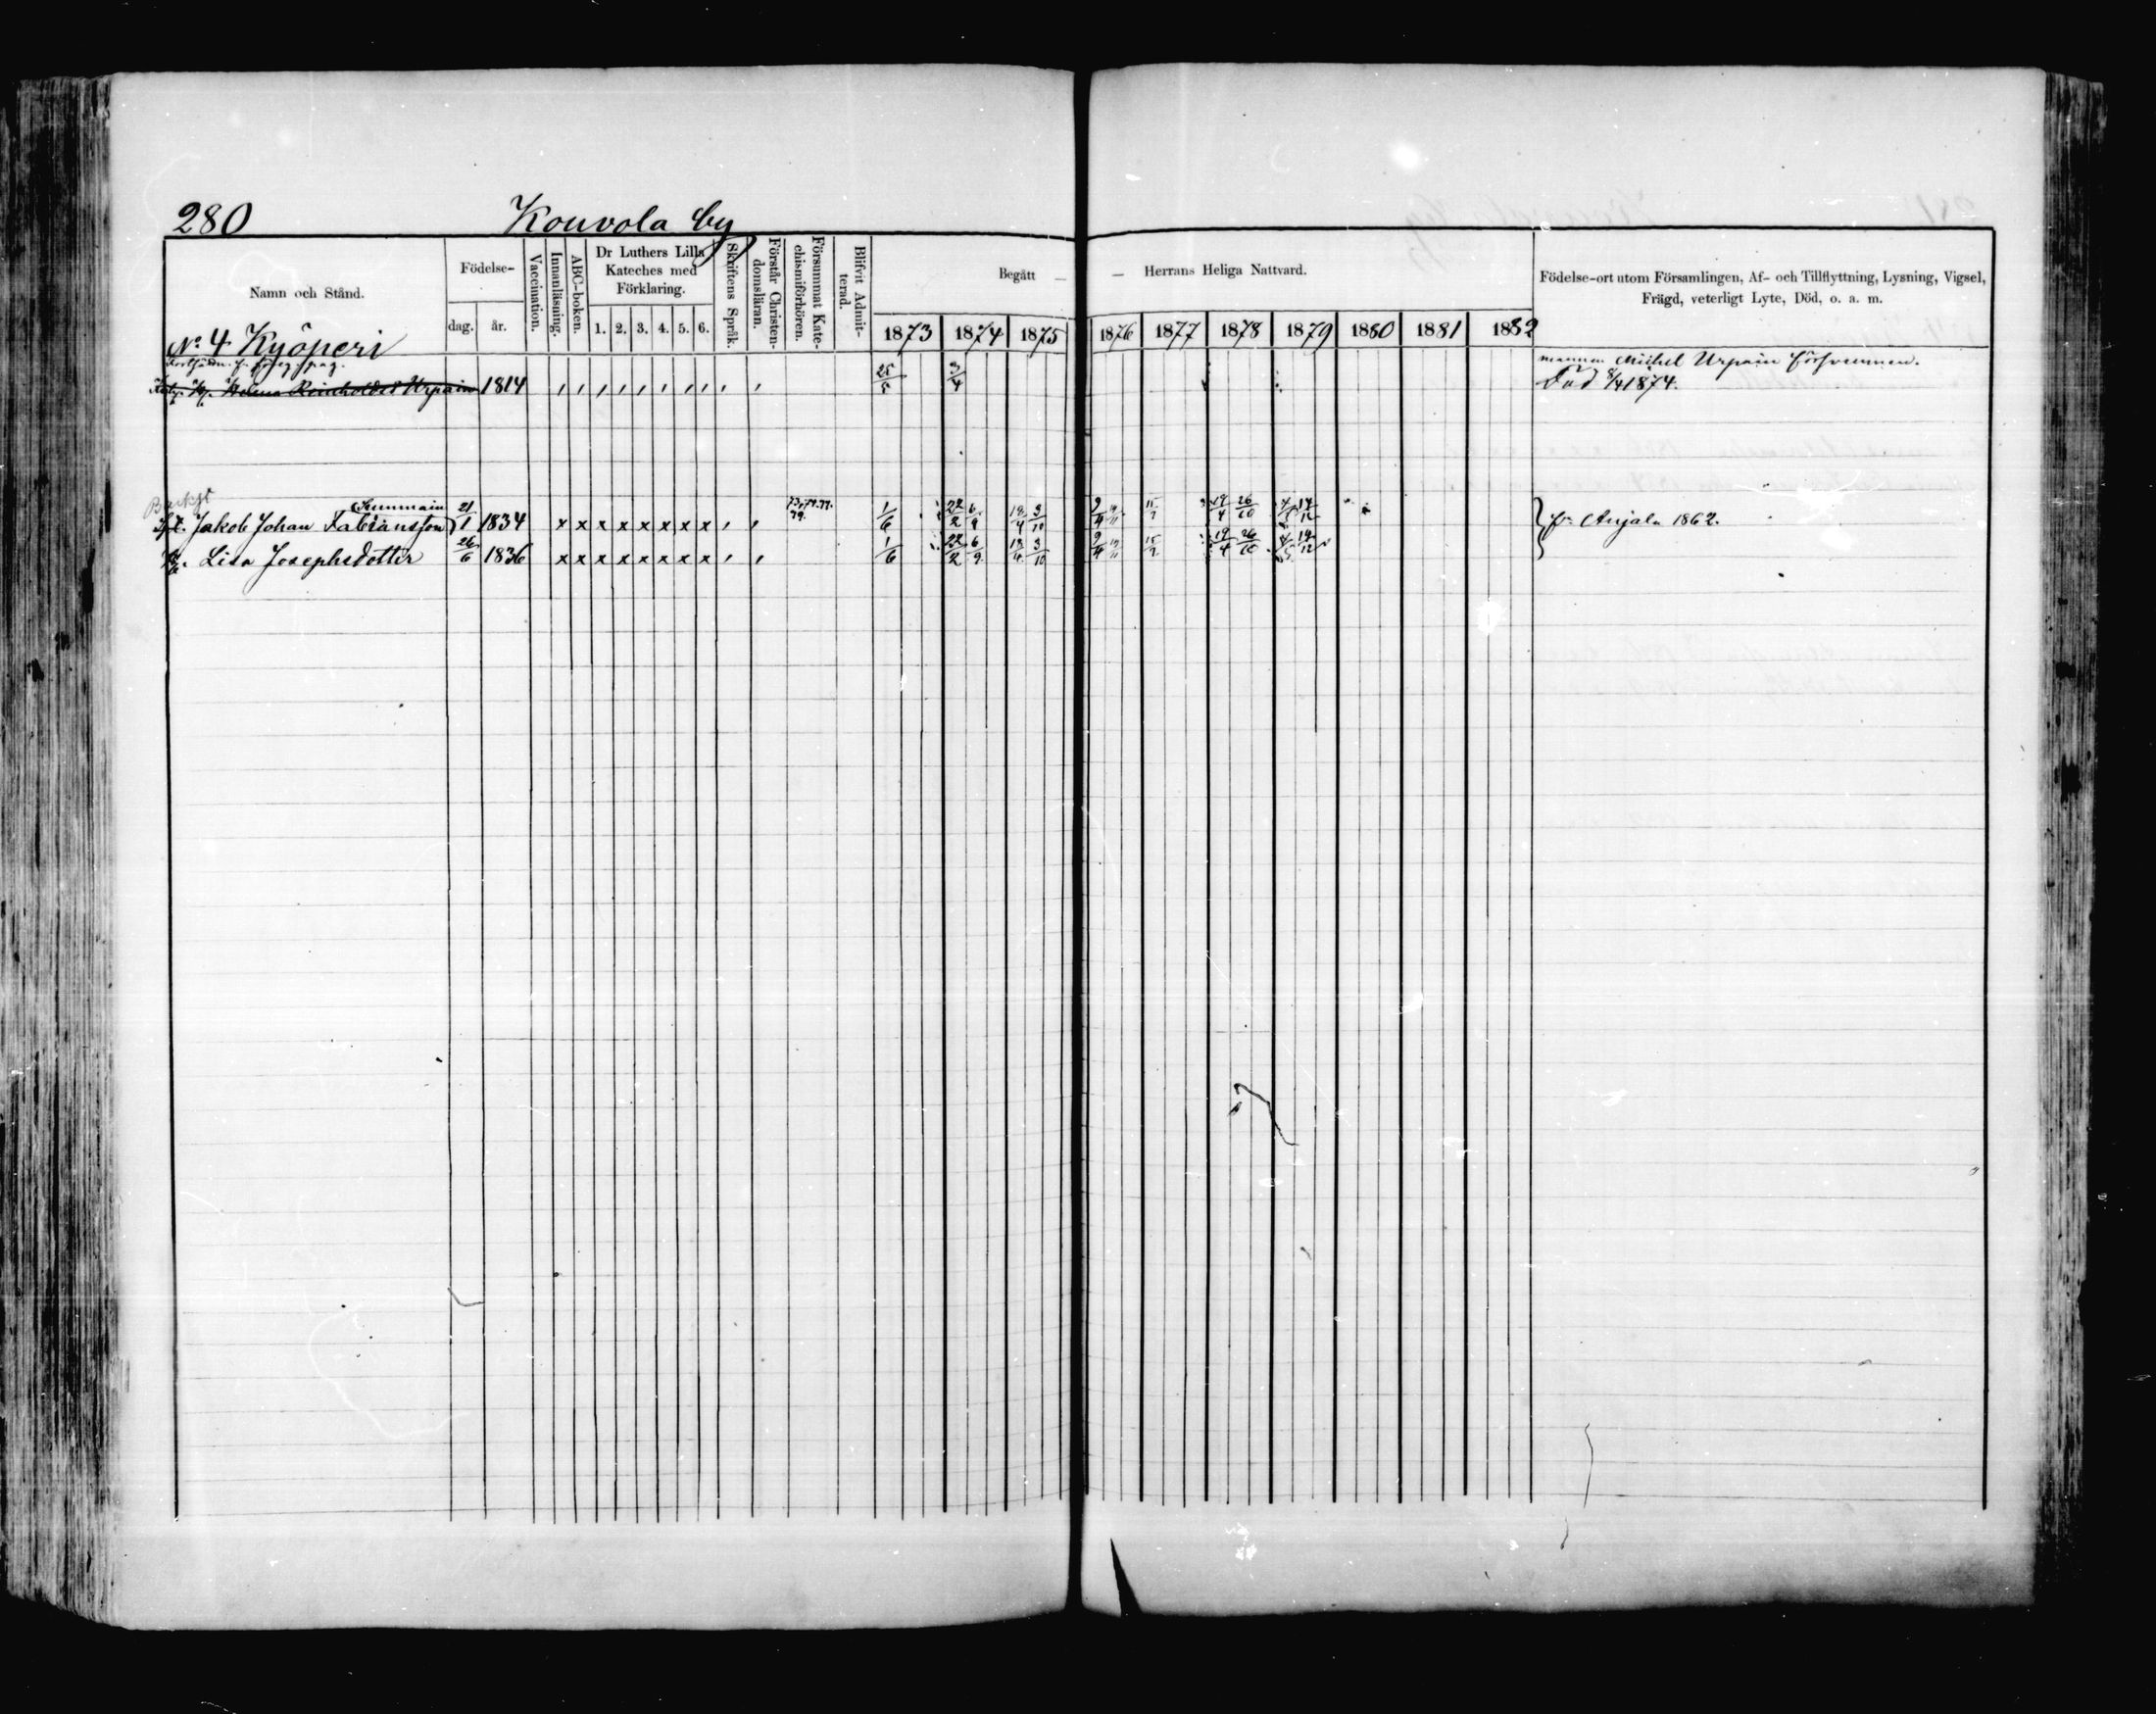 280 Kouvola by
Namn och Stånd.
Födelse-
dag. år.
Vaccination.
Innanläsning.
ABC-boken.
Dr Luthers Lilla
Kateches med
Förklaring.
1. 2. 3. 4. 5. 6.
Skriftens Språk.
Förstår Christen-
domsläran.
Försummat Kate-
chismiförhören.
Blifvit Admit-
terad.
Begått — — Herrans Heliga Nattvard.
1873 1874 1875 1876 1877 1878 1879 1880 1881 1882
Födelse-ort utom Församlingen, Af- och Tillflyttning, Lysning, Vigsel,
Frägd, veterligt Lyte, Död, o. a. m.
No 4 Kyöperi
mannen Michel Urpain försvunnen.
Helena Reinholdsd Urpain 1814 25/5 3/4 Död 8/4 1874.
Backst
Summain
Jakob Johan Fabiansson 21/1 1834 x x x x x x x x 1/6 22/2 6/9 18/4 3/10 9/4 15/7 14/4 26/10 fr. Anjala 1862.
Lisa Josephsdotter 26/6 1836 x x x x x x x x 1/6 22/2 6/9 18/4 3/10 9/4 15/7 14/4 26/10